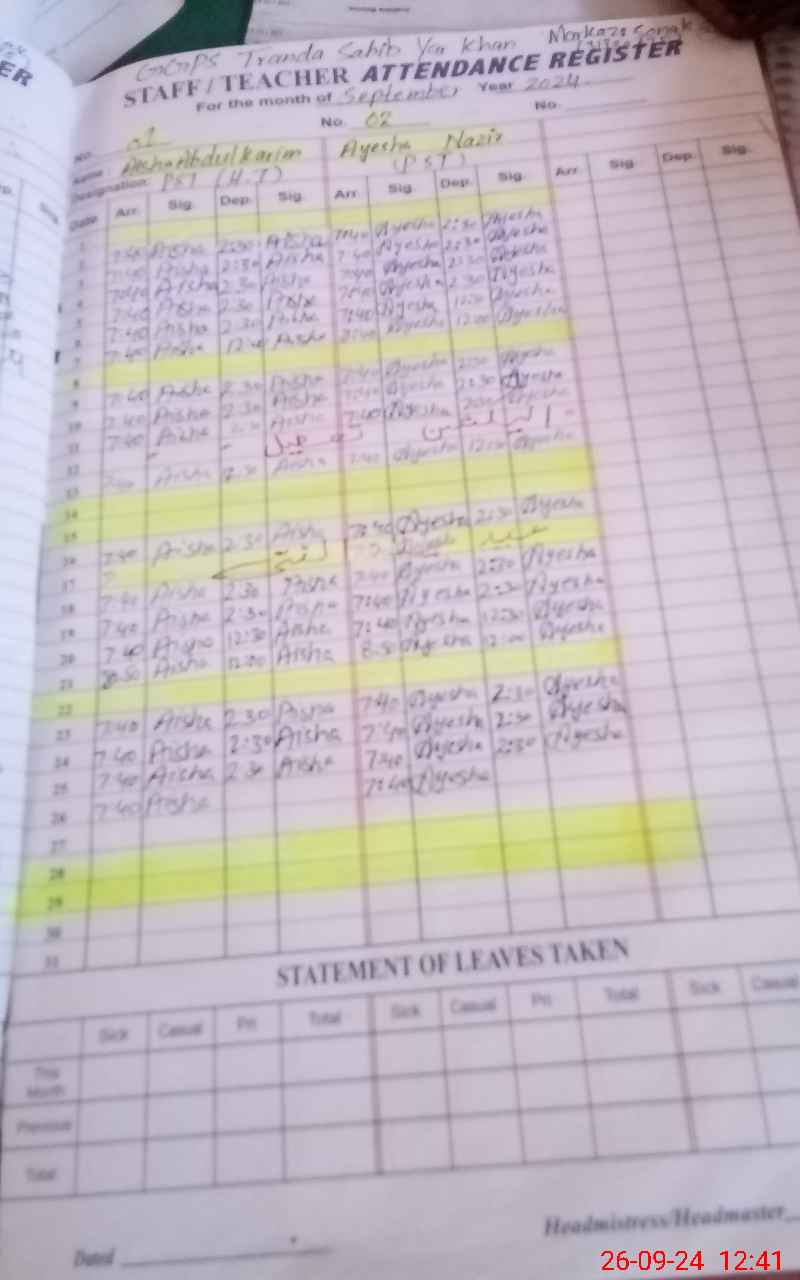 GGPS Tranda Sahib Yar Khan Markaz
STAFF / TEACHER ATTENDANCE REGISTER
For the month of September Year 2024
No. 01 No. 02 No.
Name AishaAbdulkarim Ayesha Nazir
Designation PST (H.T) (PST)
Date Arr. Sig. Dep. Sig. Arr. Sig. Dep. Sig. Arr. Sig. Dep. Sig.
1
2 7:40 Aisha 2:30 Aisha 7:40 Ayesha 2:30 Ayesha
3 7:40 Aisha 2:30 Aisha 7:40 Ayesha 2:30 Ayesha
4 7:40 Aisha 2:30 Aisha 7:40 Ayesha 2:30 Ayesha
5 7:40 Aisha 2:30 Aisha 7:40 Ayesha 2:30 Ayesha
6 7:40 Aisha 2:30 Aisha 7:40 Ayesha Ayesha
7 7:40 Aisha Aisha Ayesha 12:00 Ayesha
8
9 7:40 Aisha 2:30 Aisha 7:40 Ayesha 2:30 Ayesha
10 7:40 Aisha 2:30 Aisha 7:40 Ayesha 2:30 Ayesha
11 7:40 Aisha Aisha 7:40 Ayesha Ayesha
12
13 7:40 Aisha 12:30 Aisha 7:40 Ayesha Ayesha
14
15
16 7:40 Aisha 2:30 Aisha 7:40 Ayesha 2:30 Ayesha
17 عید
18 7:40 Aisha 2:30 Aisha 7:40 Ayesha 2:30 Ayesha
19 7:40 Aisha 2:30 Aisha 7:40 Ayesha 2:30 Ayesha
20 7:40 Aisha 12:30 Aisha 7:40 Ayesha 12:30 Ayesha
21 8:50 Aisha 12:00 Aisha 8:50 Ayesha 12:00 Ayesha
22
23 7:40 Aisha 2:30 Aisha 7:40 Ayesha 2:30 Ayesha
24 7:40 Aisha 2:30 Aisha 7:40 Ayesha 2:30 Ayesha
25 7:40 Aisha 2:30 Aisha 7:40 Ayesha 2:30 Ayesha
26 7:40 Aisha 7:40 Ayesha
27
28
29
30
31
STATEMENT OF LEAVES TAKEN
Sick Casual Pri Total Sick Casual Pri Total Sick Casual
This Month
Previous
Total
Headmistress/Headmaster
Dated
26-09-24 12:41